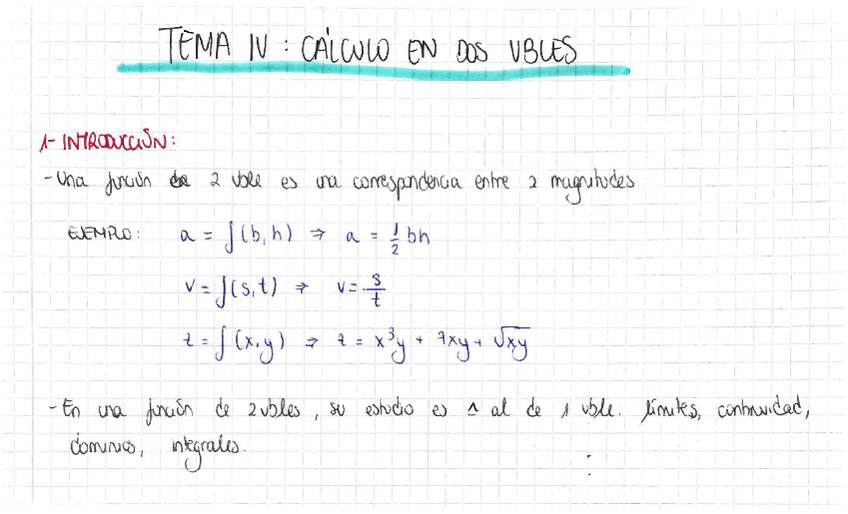 TEMA IV : CÁLCULO EN DOS VBLES
1- INTRODUCCIÓN:
- Una función de 2 vble es una correspondencia entre 2 magnitudes
EJEMPLO: a = f(b,h) ⇒ a = 1/2 bh
v = f(s,t) ⇒ v = s/t
z = f(x,y) ⇒ z = x³y + 7xy + √xy
- En una función de 2 vbles, su estudio es al de 1 vble. límites, continuidad,
dominios, integrales.